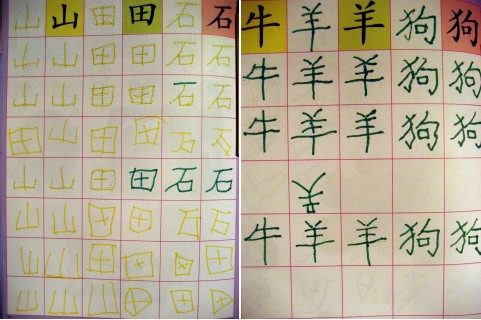 山 山 田 田 石 石
山 山 田 田 石 石
山 山 田 田 石 石
田 山 田 田 石 石
山 山 田 田 石 石
山 山 田 田 石 石
山 山 田 田 田
山 山 田 田
牛 羊 羊 狗 狗
牛 羊 羊 狗 狗
牛 羊 羊 狗 狗
牛 羊 羊 狗 狗